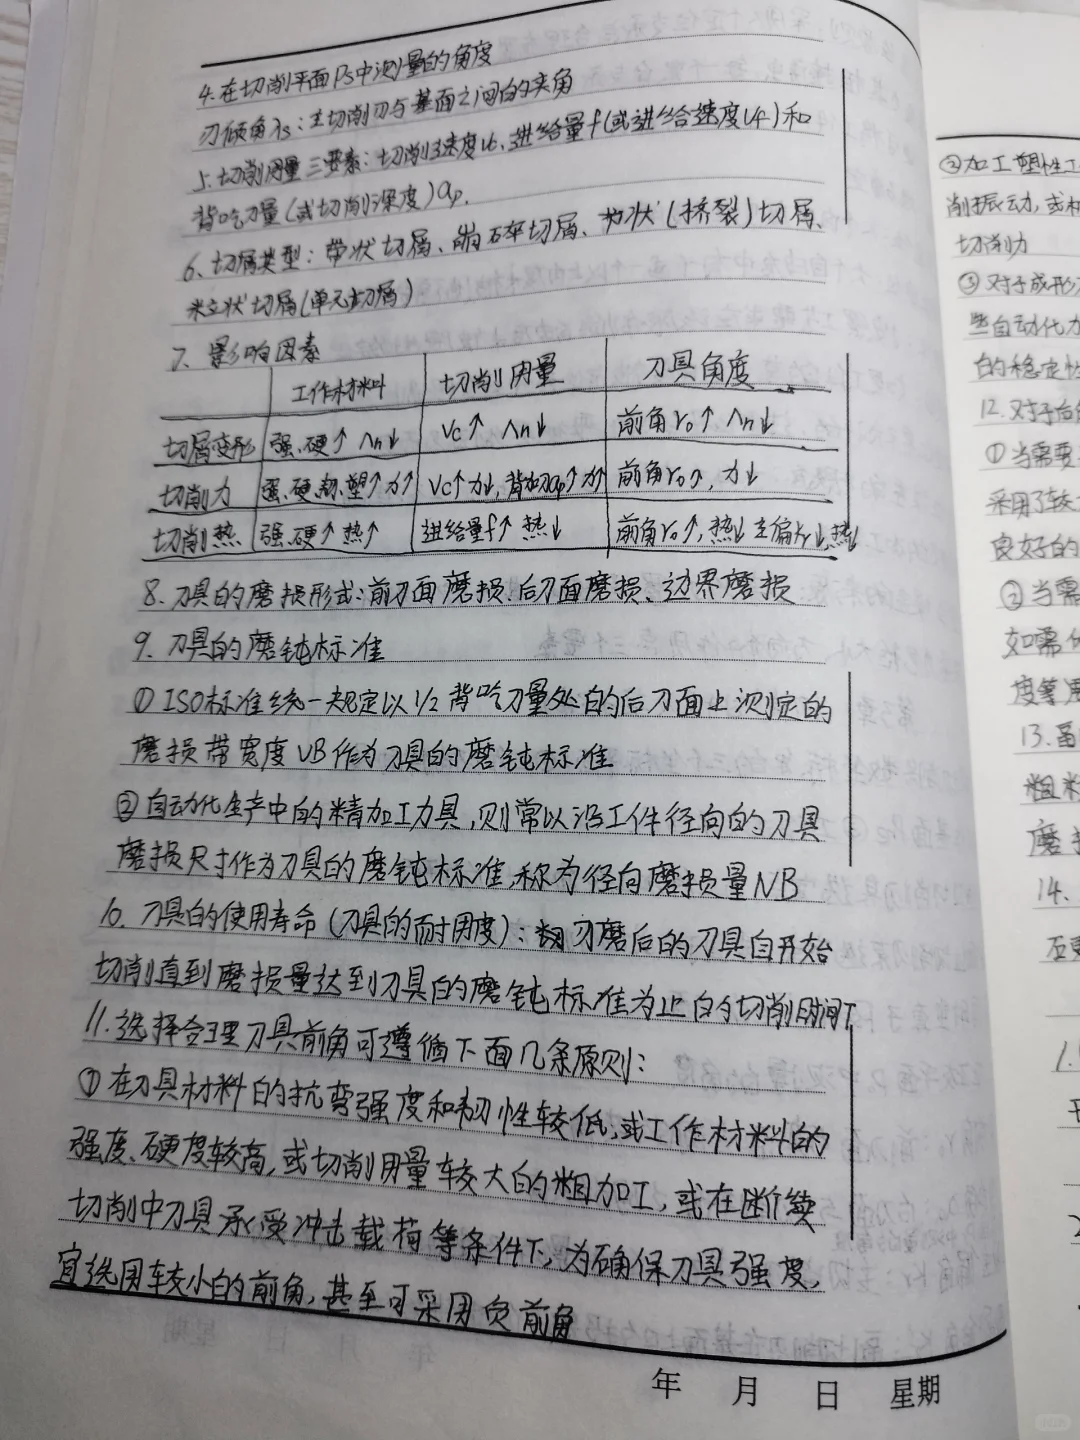 4.在切削平面Ps中测量的角度
刃倾角λs：主切削刃与基面之间的夹角
5.切削用量三要素：切削速度vc,进给量f(或进给速度vf)和
背吃刀量(或切削深度)ap.
6、切屑类型：带状切屑、崩碎切屑、节状(挤裂)切屑、
粒状切屑(单元切屑)
7、影响因素
工作材料 切削用量 刀具角度
切屑变形 强、硬↑ Λh↓ Vc↑ Λh↓ 前角r₀↑ Λh↓
切削力 强、硬、韧、塑↑力↑ Vc↑力↓,背ap↑力↑ 前角r₀↑,力↓
切削热 强、硬↑热↑ 进给量f↑热↓ 前角r₀↑,热↓主偏kr↓,热↓
8.刀具的磨损形式：前刀面磨损、后刀面磨损、边界磨损
9.刀具的磨钝标准
①ISO标准统一规定以1/2背吃刀量处的后刀面上测定的
磨损带宽度VB作为刀具的磨钝标准
②自动化生产中的精加工刀具,则常以沿工件径向的刀具
磨损尺寸作为刀具的磨钝标准,称为径向磨损量NB
10.刀具的使用寿命(刀具的耐用度)：刃磨后的刀具自开始
切削直到磨损量达到刀具的磨钝标准为止的切削时间T
11.选择合理刀具前角可遵循下面几条原则：
①在刀具材料的抗弯强度和韧性较低,或工作材料的
强度、硬度较高,或切削用量较大的粗加工,或在断续
切削中刀具承受冲击载荷等条件下,为确保刀具强度,
宜选用较小的前角,甚至可采用负前角
年 月 日 星期
②加工塑性工
削振动,或
切削力
③对于成形
些自动化
的稳定性
12.对于后
①当需要
采用了较
良好的
②当需
如需
度等
13.
粗
磨
14.